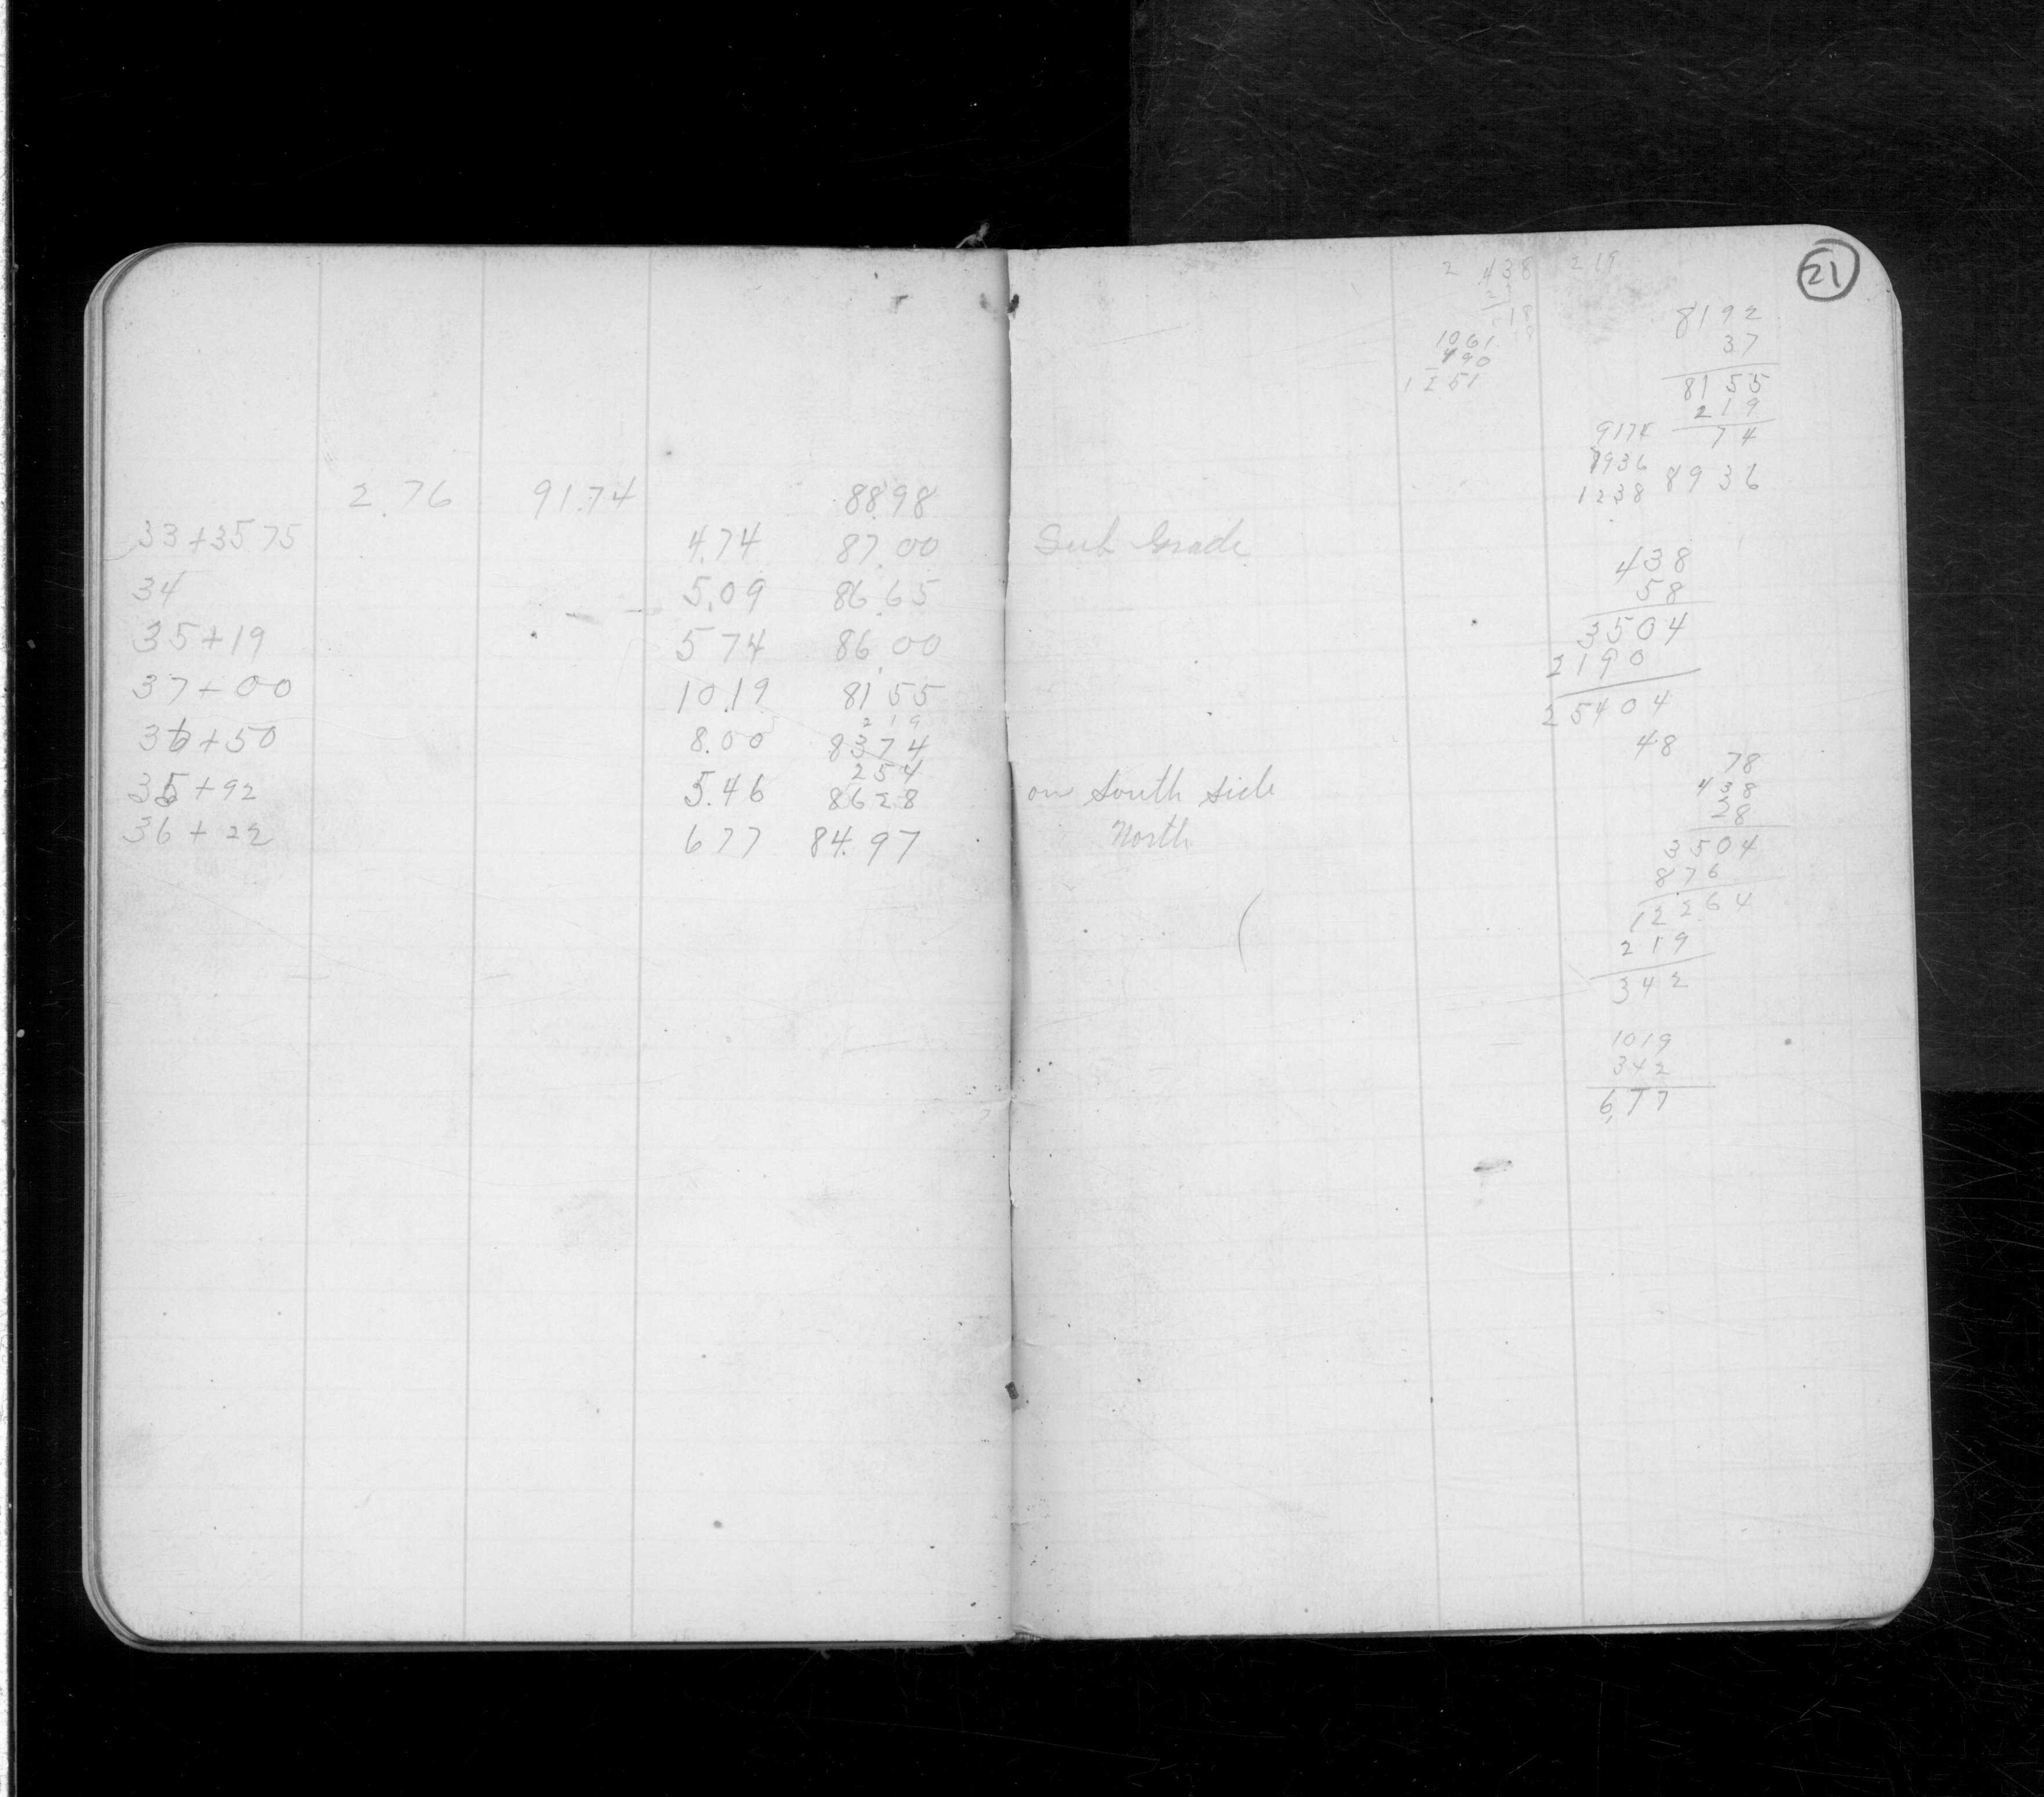 2.76 91.74 88.98
33+35 75 4.74 87.00 Sub Grade
34 5.09 86.65
35+19 5 74 86.00
37+00 10.19 81 55
2 19
36+50 8.00 83 74
2 54
35+92 5.46 86 28 on South Side
36+22 6 77 84.97 North
21
2 438 219
18
1061
190
1251
8192
37
8155
219
74
9174
7936
1238 8936
438
58
3504
2190
25404
48
78
438
28
3504
876
12264
219
342
1019
342
6,77